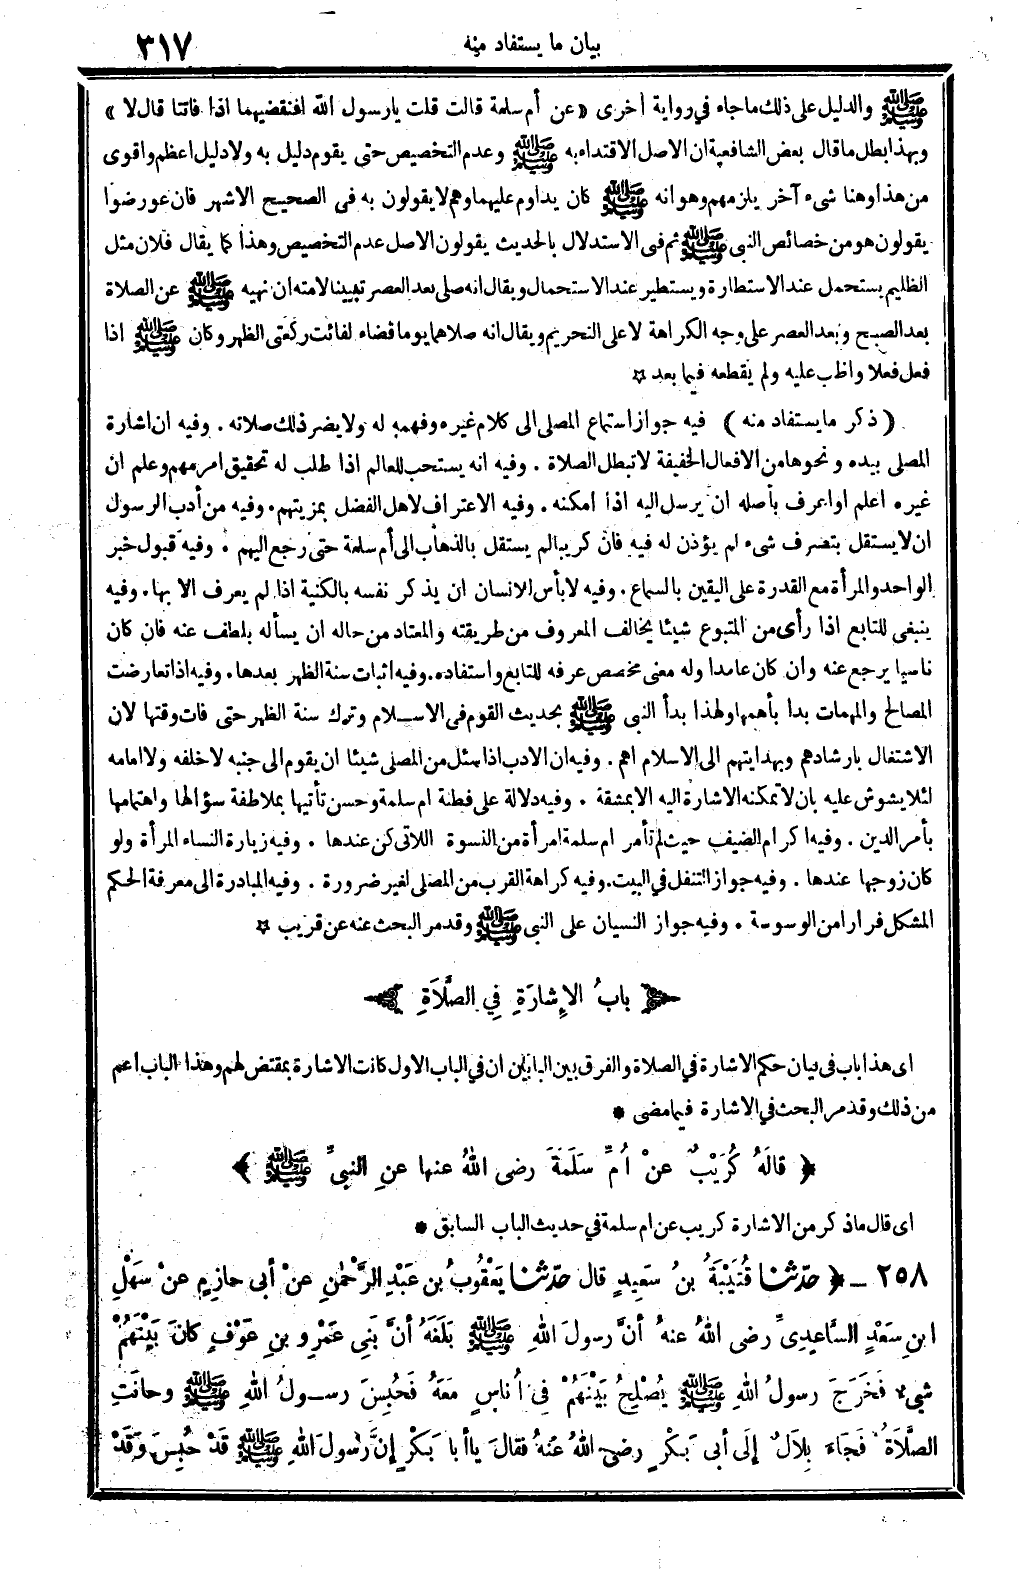 بيان ما يستفاد منه
٣١٧
ﷺ والدليل على ذلك ما جاء في رواية أخرى «عن أم سلمة قالت قلت يا رسول الله افنقضيهما اذا فاتتا قال لا»
وبهذا بطل ما قال بعض الشافعية ان الاصل الاقتداء به ﷺ وعدم التخصيص حتى يقوم دليل به ولا دليل اعظم واقوى
من هذا وهنا شيء آخر يلزمهم وهو انه ﷺ كان يداوم عليهما وهم لا يقولون به في الصحيح الاشهر فان عورضوا
يقولون هو من خصائص النبي ﷺ ثم في الاستدلال بالحديث يقولون الاصل عدم التخصيص وهذا كما يقال فلان مثل
الظليم يستحمل عند الاستطارة ويستطير عند الاستحمال ويقال انه صلى بعد العصر تبيينا لامته ان نهيه ﷺ عن الصلاة
بعد الصبح وبعد العصر على وجه الكراهة لا على التحريم ويقال انه صلاهما يوما قضاء لفائت ركعتي الظهر وكان ﷺ اذا
فعل فعلا واظب عليه ولم يقطعه فيما بعد ☆
(ذكر ما يستفاد منه) فيه جواز استماع المصلي الى كلام غيره وفهمه له ولا يضر ذلك صلاته . وفيه ان اشارة
المصلي بيده ونحوها من الافعال الخفيفة لا تبطل الصلاة . وفيه انه يستحب للعالم اذا طلب له تحقيق امر مهم وعلم ان
غيره اعلم او اعرف بأصله ان يرسل اليه اذا امكنه . وفيه الاعتراف لاهل الفضل بمزيتهم . وفيه من أدب الرسول
ان لا يستقل بتصرف شيء لم يؤذن له فيه فان كريبا لم يستقل بالذهاب الى أم سلمة حتى رجع اليهم . وفيه قبول خبر
الواحد والمرأة مع القدرة على اليقين بالسماع . وفيه لا بأس الانسان ان يذكر نفسه بالكنية اذا لم يعرف الا بها . وفيه
ينبغي للتابع اذا رأى من المتبوع شيئا يخالف المعروف من طريقته والمعتاد من حاله ان يسأله بلطف عنه فان كان
ناسيا يرجع عنه وان كان عامدا وله معنى مخصص عرفه للتابع واستفاده . وفيه اثبات سنة الظهر بعدها . وفيه اذا تعارضت
المصالح والمهمات بدا بأهمها ولهذا بدأ النبي ﷺ بحديث القوم في الاسلام وترك سنة الظهر حتى فات وقتها لان
الاشتغال بارشادهم وبهدايتهم الى الاسلام اهم . وفيه ان الادب اذا سئل من المصلي شيئا ان يقوم الى جنبه لا خلفه ولا امامه
لئلا يشوش عليه بان لا تمكنه الاشارة اليه الا بمشقة . وفيه دلالة على فطنة ام سلمة وحسن تأتيها بملاطفة سؤالها واهتمامها
بأمر الدين . وفيه اكرام الضيف حيث لم تأمر ام سلمة امرأة من النسوة اللاتي كن عندها . وفيه زيارة النساء المرأة ولو
كان زوجها عندها . وفيه جواز التنفل في البيت . وفيه كراهة القرب من المصلي لغير ضرورة . وفيه المبادرة الى معرفة الحكم
المشكل فرارا من الوسوسة . وفيه جواز النسيان على النبي ﷺ وقد مر البحث عنه عن قريب ☆
بابُ الإِشارَةِ فِي الصَّلاَةِ
اى هذا باب في بيان حكم الاشارة في الصلاة والفرق بين البابين ان في الباب الاول كانت الاشارة بمقتض لهم وهذا الباب اعم
من ذلك وقد مر البحث في الاشارة فيما مضى *
﴿ قالَهُ كُرَيْبٌ عنْ أُمِّ سَلَمَةَ رضى اللهُ عنها عنِ النبيِّ ﷺ ﴾
اى قال ما ذكر من الاشارة كريب عن ام سلمة في حديث الباب السابق *
٢٥٨ - ﴿ حدّثنا قُتَيْبَةُ بنُ سَعِيدٍ قال حدّثنا يَعْقُوبُ بن عَبْدِ الرَّحْمٰنِ عنْ أبى حازِمٍ عنْ سَهْلِ
ابنِ سَعْدٍ السَّاعِدِيِّ رضى اللهُ عنهُ أنَّ رسولَ اللهِ ﷺ بَلَغَهُ أنَّ بَنِى عَمْرِو بنِ عَوْفٍ كانَ بَيْنَهُمْ
شىءٌ فَخَرَجَ رسولُ اللهِ ﷺ يُصْلِحُ بَيْنَهُمْ فِى أُناسٍ مَعَهُ فَحُبِسَ رسولُ اللهِ ﷺ وحانَتِ
الصَّلاَةُ فَجاءَ بِلاَلٌ إلَى أبى بَكْرٍ رضى اللهُ عنهُ فقالَ ياأبا بَكْرٍ إنَّ رسُولَ اللهِ ﷺ قَدْ حُبِسَ وَقَدْ